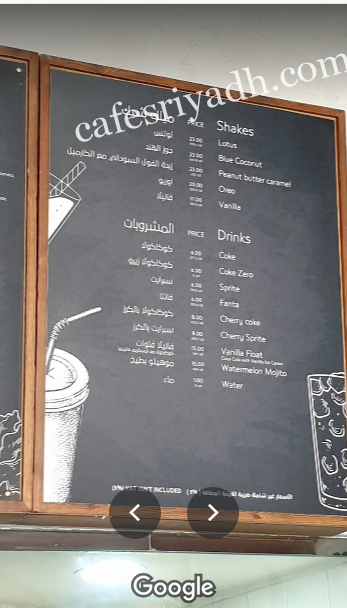 cafesriyadh.com
PRICE Shakes
لوتس 23.00 Lotus
جوز الهند 23.00 Blue Coconut
زبدة الفول السوداني مع الكارميل 23.00 Peanut butter caramel
اوريو 20.00 Oreo
فانيلا 17.00 Vanilla
المشروبات PRICE Drinks
كوكاكولا 6.00 Coke
كوكاكولا زيرو 6.00 Coke Zero
سبرايت 6.00 Sprite
فانتا 6.00 Fanta
كوكاكولا بالكرز 8.00 Cherry coke
سبرايت بالكرز 8.00 Cherry Sprite
فانيلا فلوت 15.00 Vanilla Float
Coca Cola with Vanilla Ice Cream
موهيتو بطيخ 15.00 Watermelon Mojito
ماء 1.00 Water
VAT ISN'T INCLUDED الأسعار غير شاملة ضريبة القيمة المضافة
Google